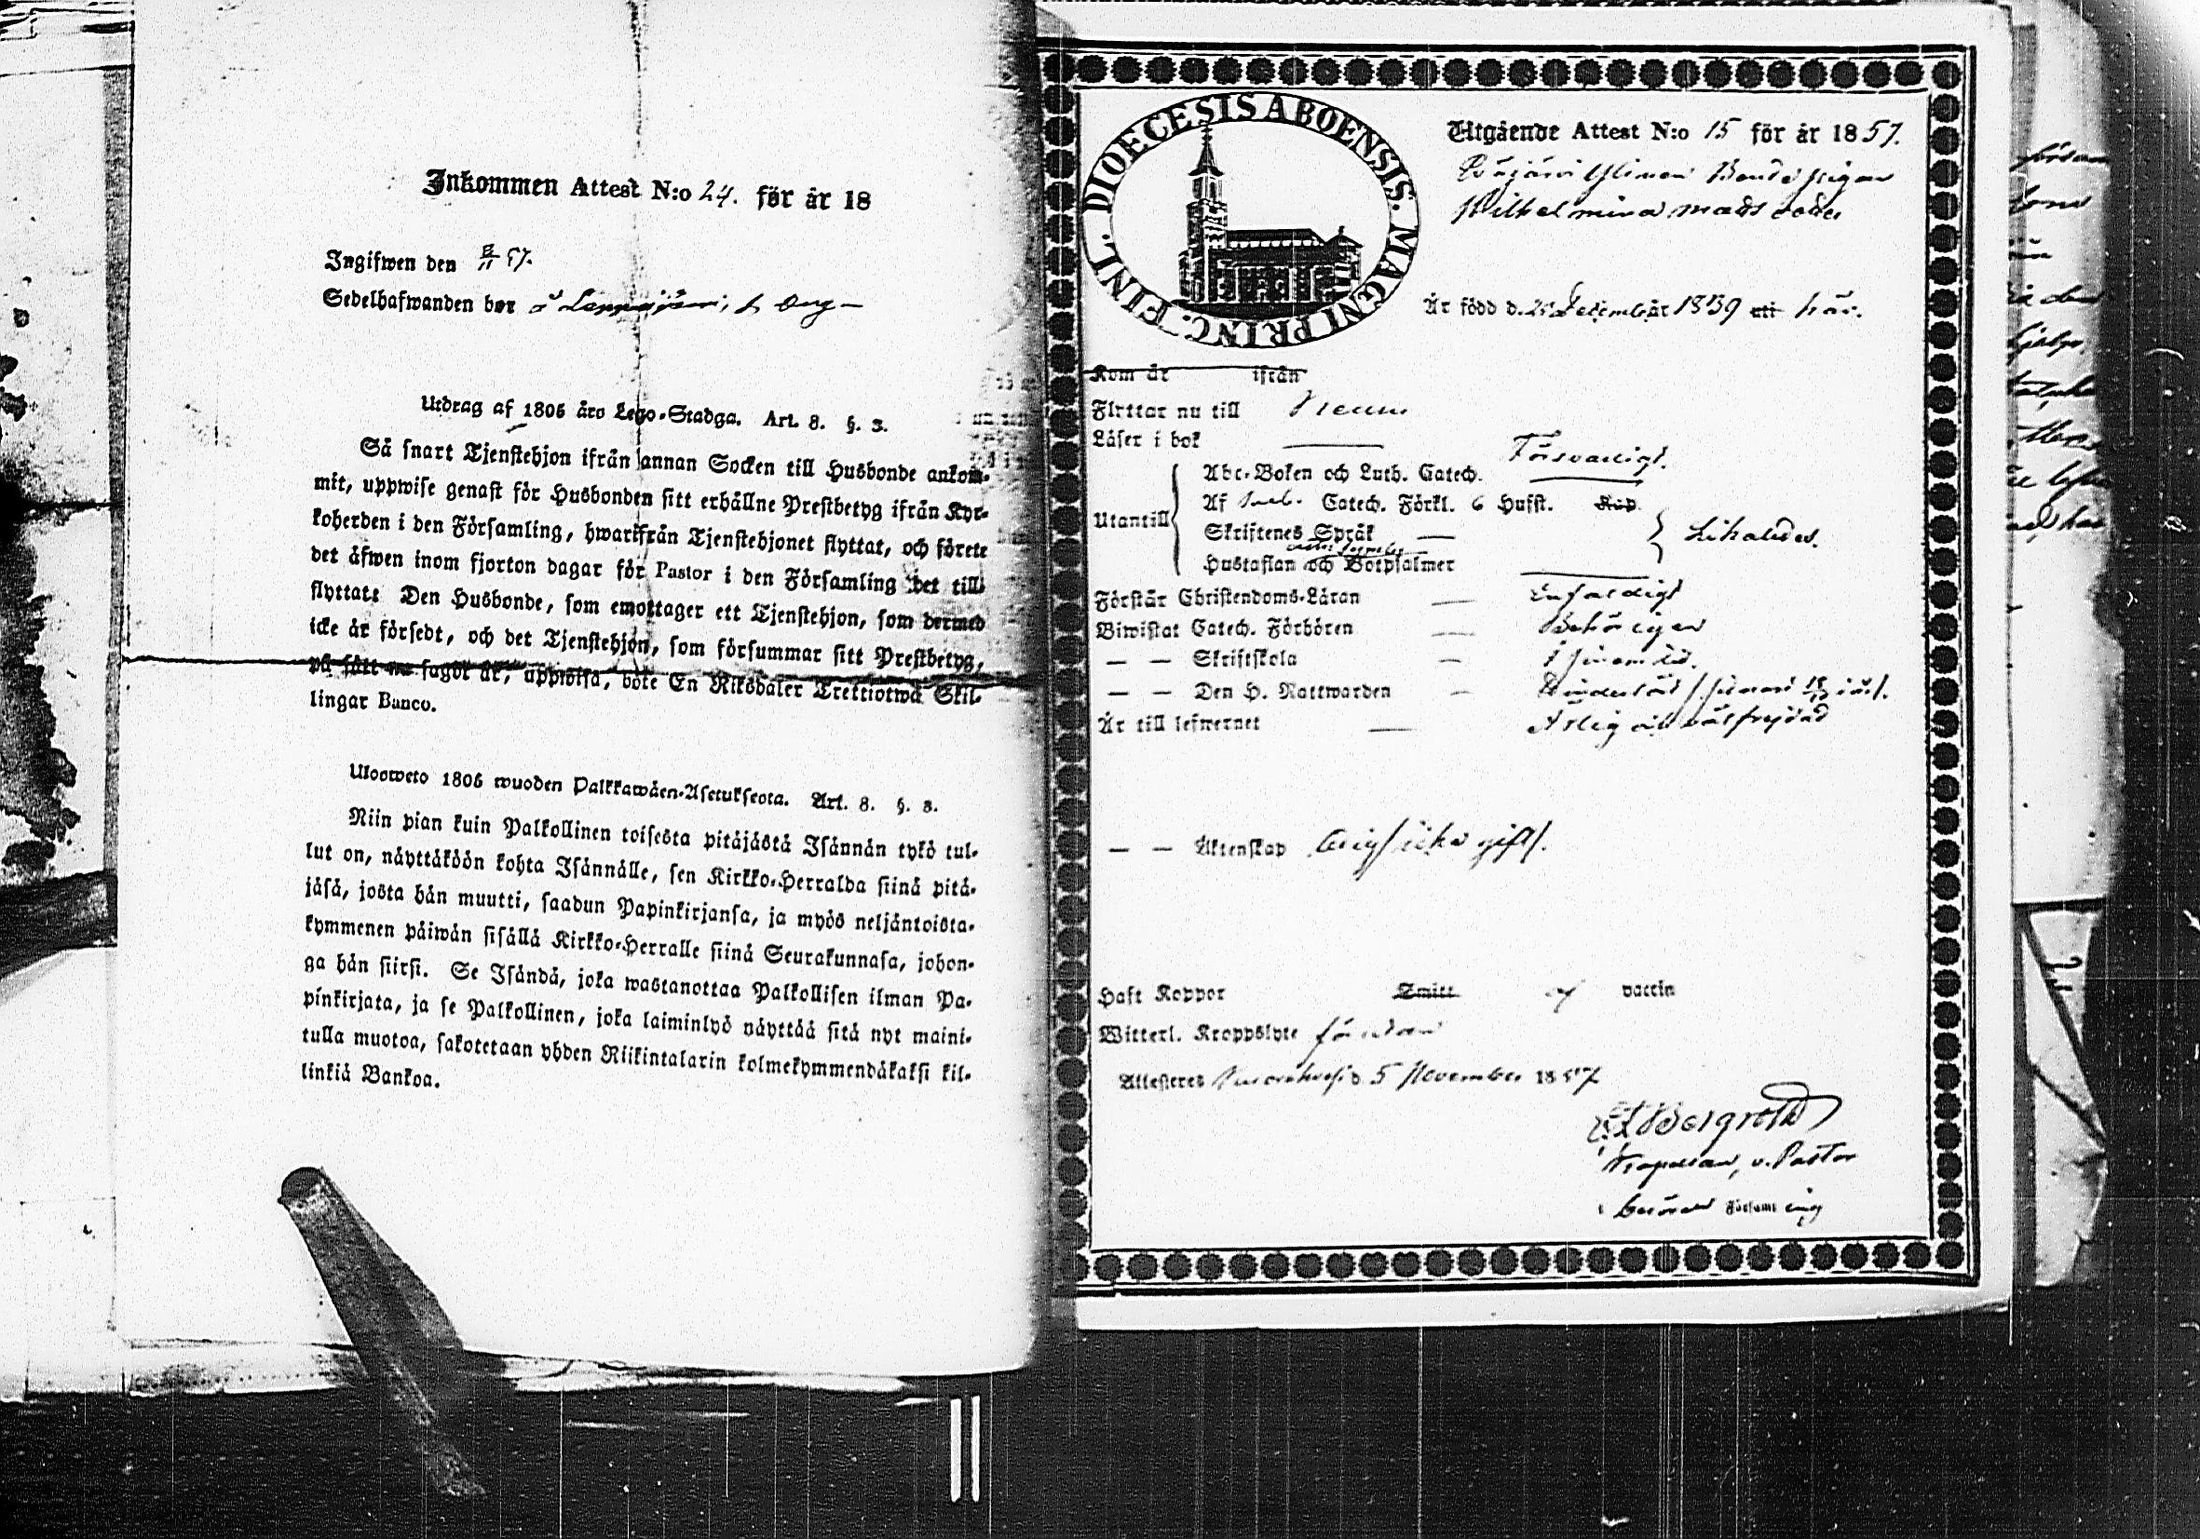 Inkommen Attest N:o 24. för år 18
Ingifwen den 8/11 57.
Sedelhafwanden bor å
Utdrag af 1805 års Lego-Stadga. Art. 8. §. 3.
Så snart Tjenstehjon ifrån annan Socken till Husbonde ankom-
mit, uppwise genast för Husbonden sitt erhållne Prestbetyg ifrån Kyr-
koherden i den Församling, hwarifrån Tjenstehjonet flyttat, och förete
det äfwen inom fjorton dagar för Pastor i den Församling det till
flyttat. Den Husbonde, som emottager ett Tjenstehjon, som dermed
icke är försedt, och det Tjenstehjon, som försummar sitt Prestbetyg,
på sätt nu sagdt är, uppwisa, böte En Riksdaler Trettiotwå Skil-
lingar Banco.
Uloosweto 1805 wuoden Palkkawäen-Asetuksesta. Art. 8. §. 3.
Niin pian kuin Palkollinen toisesta pitäjästä Isännän tykö tul-
lut on, näyttäköön kohta Isännälle, sen Kirkko-Herralda siinä pitä-
jäsä, josta hän muutti, saadun Papinkirjansa, ja myös neljäntoista-
kymmenen päiwän sisällä Kirkko-Herralle siinä Seurakunnasa, johon-
ga hän siirsi. Se Isändä, joka wastanottaa Palkollisen ilman Pa-
pinkirjata, ja se Palkollinen, joka laiminlyö näyttää sitä nyt maini-
tulla muotoa, sakotetaan yhden Riikintalarin kolmekymmendäkaksi kil-
linkiä Bankoa.
DIOECESIS ABOENSIS. MAGNI PRINC. FINL.
Utgående Attest N:o 15 för år 1857.
Bonde pigan
Wilhelmina Mats doter
Är född d. December 1839 här.
Kom år ifrån
Flyttar nu till
Läser i bok Försvarligt.
Abc-Boken och Luth. Catech.
Utantill Af Catech. Förkl. 6 Hufst.
Skriftenes Språk Likaledes.
Hustaflan och Botpsalmer
Förstår Christendoms-Läran Enfaldigt
Biwistat Catech. Förhören Behörigen
— — Skriftskola
— — Den H. Nattwarden
Är till lefwernet Ärlig och välfrejdad
— — Äktenskap Ledig icke gift.
Haft Koppor af vaccin
Witterl. Kroppslyte förutan
Attesteres d. 5 November 1857
Bergroth
Kapellan, v. Pastor
i Församling